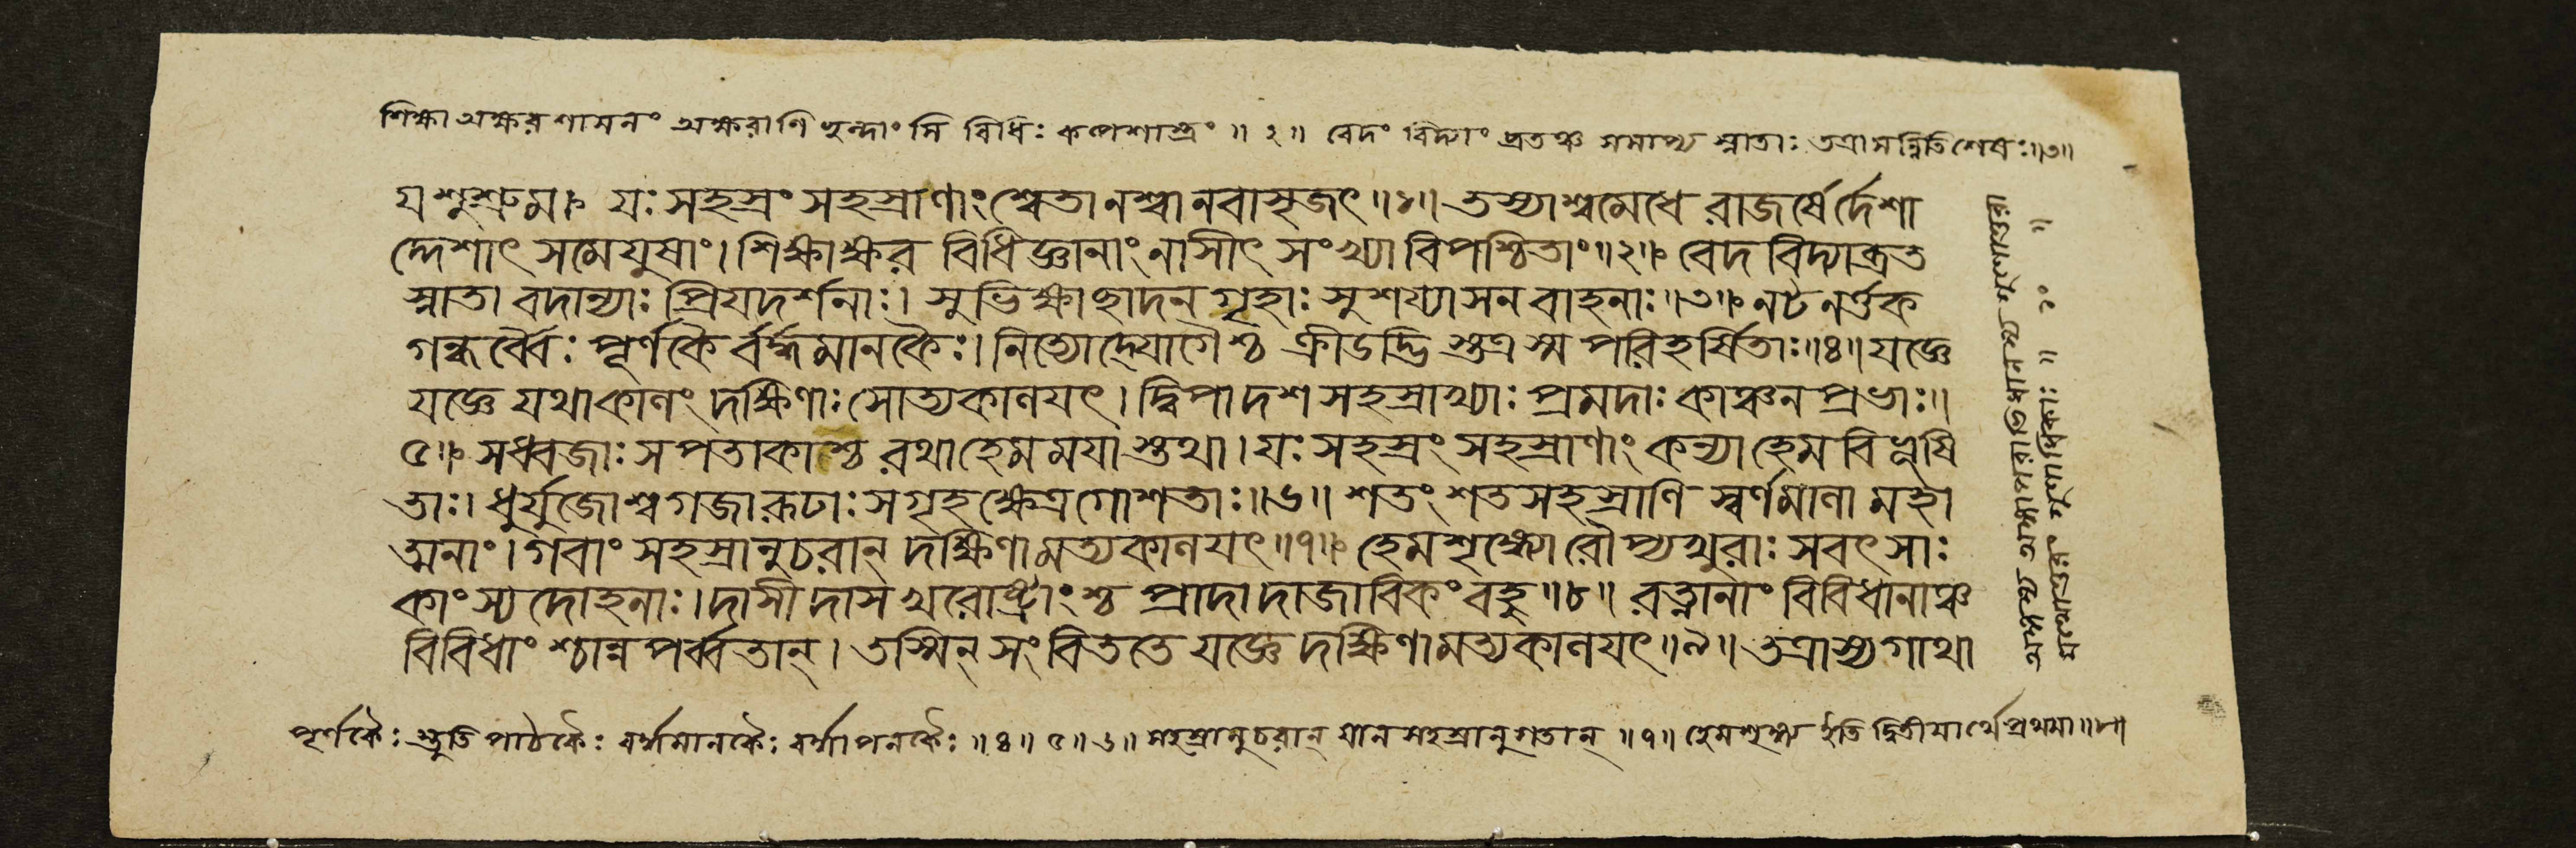 শিক্ষা অক্ষরশাসনং অক্ষরাণি ছন্দাংসি বিধিঃ কল্পশাস্ত্রং ॥ ২॥ বেদং বিদ্যাং ব্রতঞ্চ সমাপ্য স্নাতাঃ তত্রাসন্নিতিশেষঃ॥৩॥
যশুশ্রুম। যঃ সহস্রং সহস্রাণাং শ্বেতানশ্বানবাসৃজৎ॥১॥ তস্যাশ্বমেধে রাজর্ষের্দেশা
দ্দেশাৎ সমেযুষাং। শিক্ষাক্ষর বিধিজ্ঞানাং নাসীৎ সংখ্যা বিপশ্চিতাং॥২॥ বেদ বিদ্যাব্রত
স্নাতা বদান্যাঃ প্রিযদর্শনাঃ। সুভিক্ষাচ্ছাদন গৃহাঃ সুশয্যাসন বাহনাঃ॥৩॥ নট নর্ত্তক
গন্ধর্ব্বৈঃ পূর্ণকৈ র্বর্দ্ধমানকৈঃ। নিত্যোদ্যোগৈশ্চ ক্রীডদ্ভি স্তত্র স্ম পরিহর্ষিতাঃ॥৪॥ যজ্ঞে
যজ্ঞে যথাকালং দক্ষিণাঃ সোত্যকালযৎ। দ্বিপা দশ সহস্রাখ্যাঃ প্রমদাঃ কাঞ্চন প্রভাঃ॥
৫॥ সধ্বজাঃ স পতাকাশ্চ রথা হেমমযা স্তথা। যঃ সহস্রং সহস্রাণাং কন্যা হেম বিভূষি
তাঃ। ধুর্যুজোশ্বগজারূঢাঃ সগৃহ ক্ষেত্র গোশতাঃ॥৬॥ শতং শতসহস্রাণি স্বর্ণমালা মহা
ত্মনাং। গবাং সহস্রানুচরান্ দক্ষিণামত্যকালযৎ॥৭॥ হেমশৃঙ্গ্যো রৌপ্যখুরাঃ সবৎসাঃ
কাংস্য দোহনাঃ। দাসী দাস খরোষ্ট্রাংশ্চ প্রাদাদাজাবিকং বহু॥৮॥ রত্নানাং বিবিধানাঞ্চ
বিবিধাংশ্চান্ন পর্ব্বতান্। তস্মিন্ সংবিততে যজ্ঞে দক্ষিণামত্যকালযৎ॥৯॥ তত্রাস্য গাথা
পূর্ণকৈঃ স্তুতি পাঠকৈঃ বর্দ্ধমানকৈঃ বর্দ্ধাপনকৈঃ ॥৪॥ ৫॥ ৬॥ সহস্রানুচরান্ সহস্রানুগতান্ ॥৭॥ হেমশৃঙ্গ্য ইতি দ্বিতীযার্থে প্রথমা॥৮॥